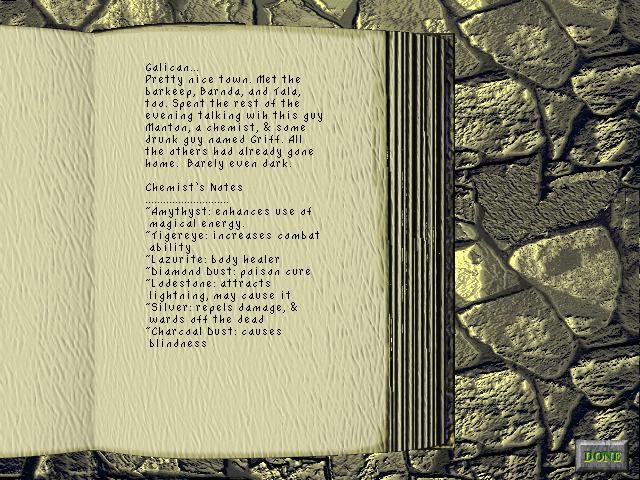 Galican...
Pretty nice town. Met the
barkeep, Barnda, and Tala,
too. Spent the rest of the
evening talking wih this guy
Manton, a chemist, & some
drunk guy named Griff. All
the others had already gone
home. Barely even dark.
Chemist's Notes
............................
~Amythyst: enhances use of
magical energy.
~Tigereye: increases combat
ability
~Lazurite: body healer
~Diamond Dust: poison cure
~Lodestone: attracts
lightning, may cause it
~Silver: repels damage, &
wards off the dead
~Charcoal Dust: causes
blindness
DONE